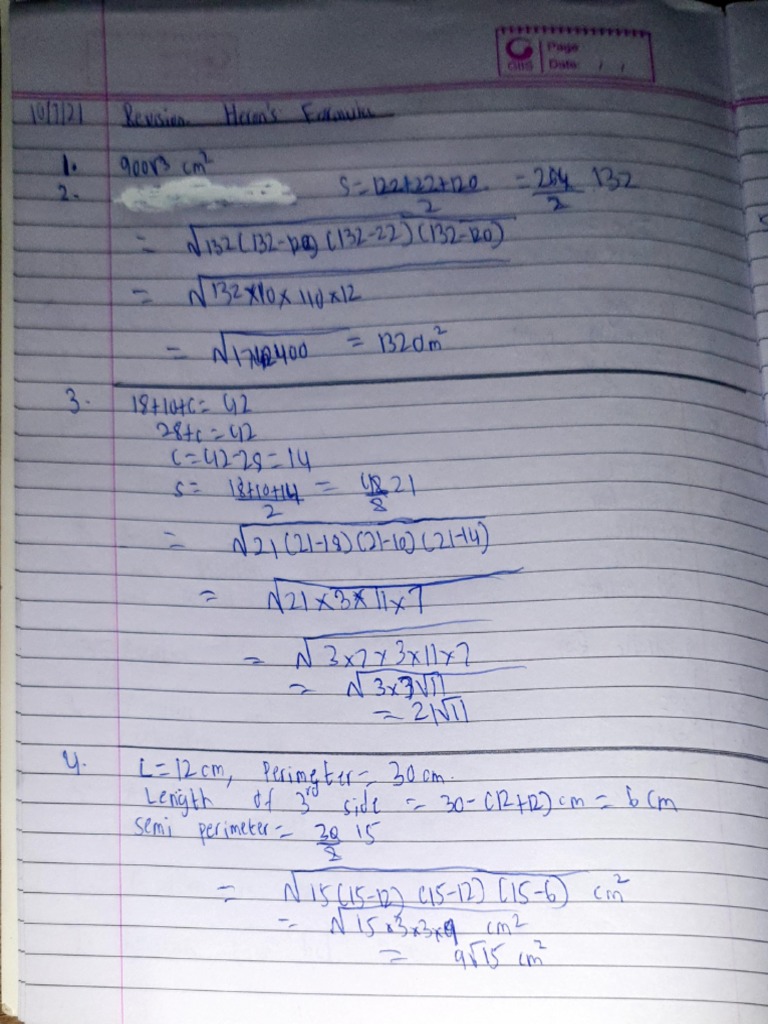 Page
GIIS Date: / /
10/7/21 Revision Heron's Formula
1. 900√3 cm²
2. S = 122+22+120/2 = 264/2 132
= √132(132-122)(132-22)(132-120)
= √132×10×110×12
= √1742400 = 1320m²
3. 18+10+c = 42
28+c = 42
c = 42-28 = 14
s = 18+10+14/2 = 42/2 21
= √21(21-18)(21-10)(21-14)
= √21×3×11×7
= √3×7×3×11×7
= √3×7√11
= 21√11
4. L = 12 cm, Perimeter = 30 cm.
Length of 3rd side = 30-(12+12) cm = 6 cm
Semi perimeter = 30/2 15
= √15(15-12)(15-12)(15-6) cm²
= √15×3×3×9 cm²
= 9√15 cm²